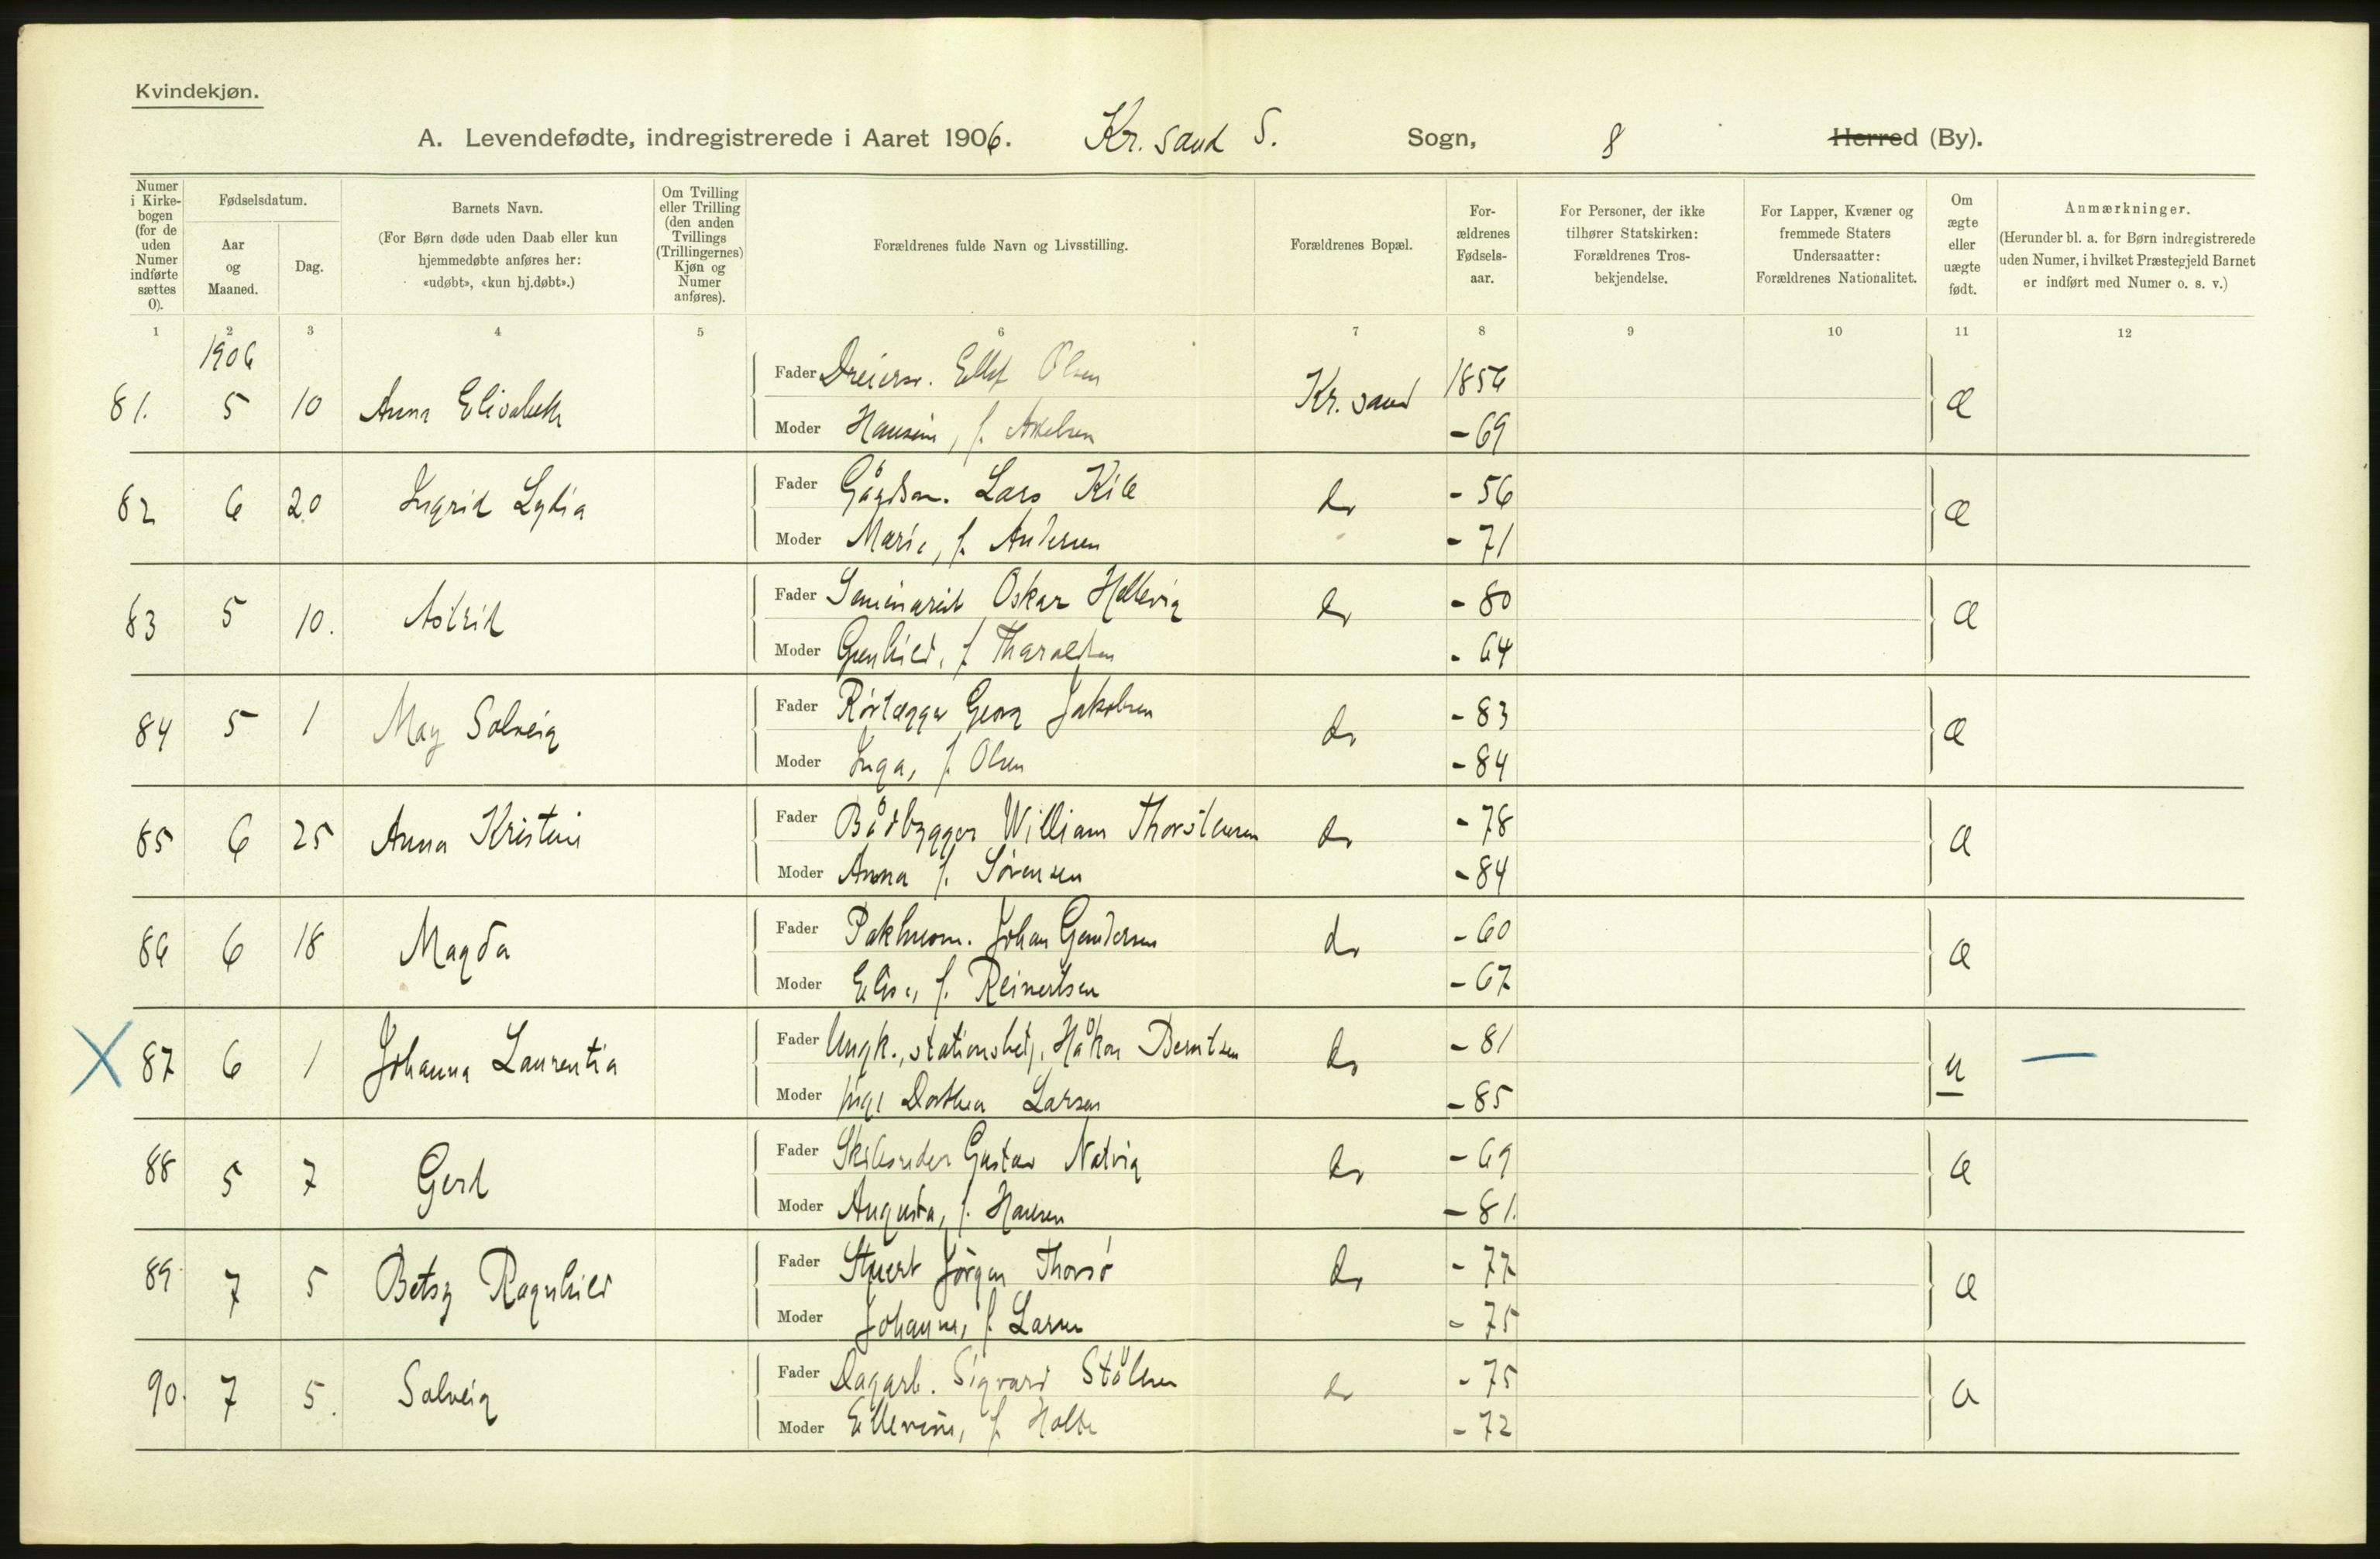 Kvindekjøn.
A. Levendefødte, indregistrerede i Aaret 1906. Kr. sand S. Sogn, 8 Herred (By).
Numer i Kirkebogen (for de uden Numer indførte sættes 0).
Fødselsdatum.
Aar og Maaned.
Dag.
Barnets Navn.
(For Børn døde uden Daab eller kun hjemmedøbte anføres her: «udøbt», «kun hj.døbt».)
Om Tvilling eller Trilling (den anden Tvillings (Trillingernes) Kjøn og Numer anføres).
Forældrenes fulde Navn og Livsstilling.
Forældrenes Bopæl.
Forældrenes Fødselsaar.
For Personer, der ikke tilhører Statskirken: Forældrenes Trosbekjendelse.
For Lapper, Kvæner og fremmede Staters Undersaatter: Forældrenes Nationalitet.
Om ægte eller uægte født.
Anmærkninger.
(Herunder bl. a. for Børn indregistrerede uden Numer, i hvilket Præstegjeld Barnet er indført med Numer o. s. v.)
1 2 3 4 5 6 7 8 9 10 11 12
1906
81. 5 10 Anna Elisabeth Fader Dreiersv. Ellef Olsen Kr. sand 1856 æ
Moder Hansine, f. Axelsen - 69
82 6 20 Ingrid Lydia Fader Lars Kile do - 56 æ
Moder Marie, f. Andersen - 71
83 5 10. Astrid Fader Seminarist Oskar Hellevig do - 80 æ
Moder Gunhild, f. Tharaldsen - 64
84 5 1 May Solveig Fader Rørlægger Georg Jakobsen do - 83 æ
Moder Inga, f. Olsen - 84
85 6 25 Anna Kristine Fader Bådbygger William Thorstensen do - 78 æ
Moder Anna f. Sørensen - 84
86 6 18 Magda Fader Pakhusm. Johan Gundersen do - 60 æ
Moder Elise, f. Reinertsen - 67
X 87 6 1 Johanna Laurentia Fader Ungk., stationsbetj. Håkon Berntsen do - 81 u —
Moder Dorthea Larsen - 85
88 5 7 Gerd Fader Gustav Natvig do - 69 æ
Moder Augusta, f. Hansen - 81.
89 7 5 Betsy Ragnhild Fader Stuert Jörgen Thorsø do - 77 æ
Moder Johanne, f. Larsen - 75
90. 7 5. Solveig Fader Dagarb. Sigvard Stålsen do - 75 æ
Moder Ellevine, f. Holte - 72